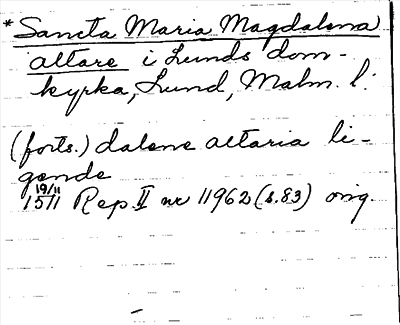 * Sancta Maria Magdalena
altare i Lunds dom-
kyrka, Lund, Malm. l.
(forts.) dalene altaria li-
gende
19/11
1511 Rep. II nr 11962 (s.83) orig.